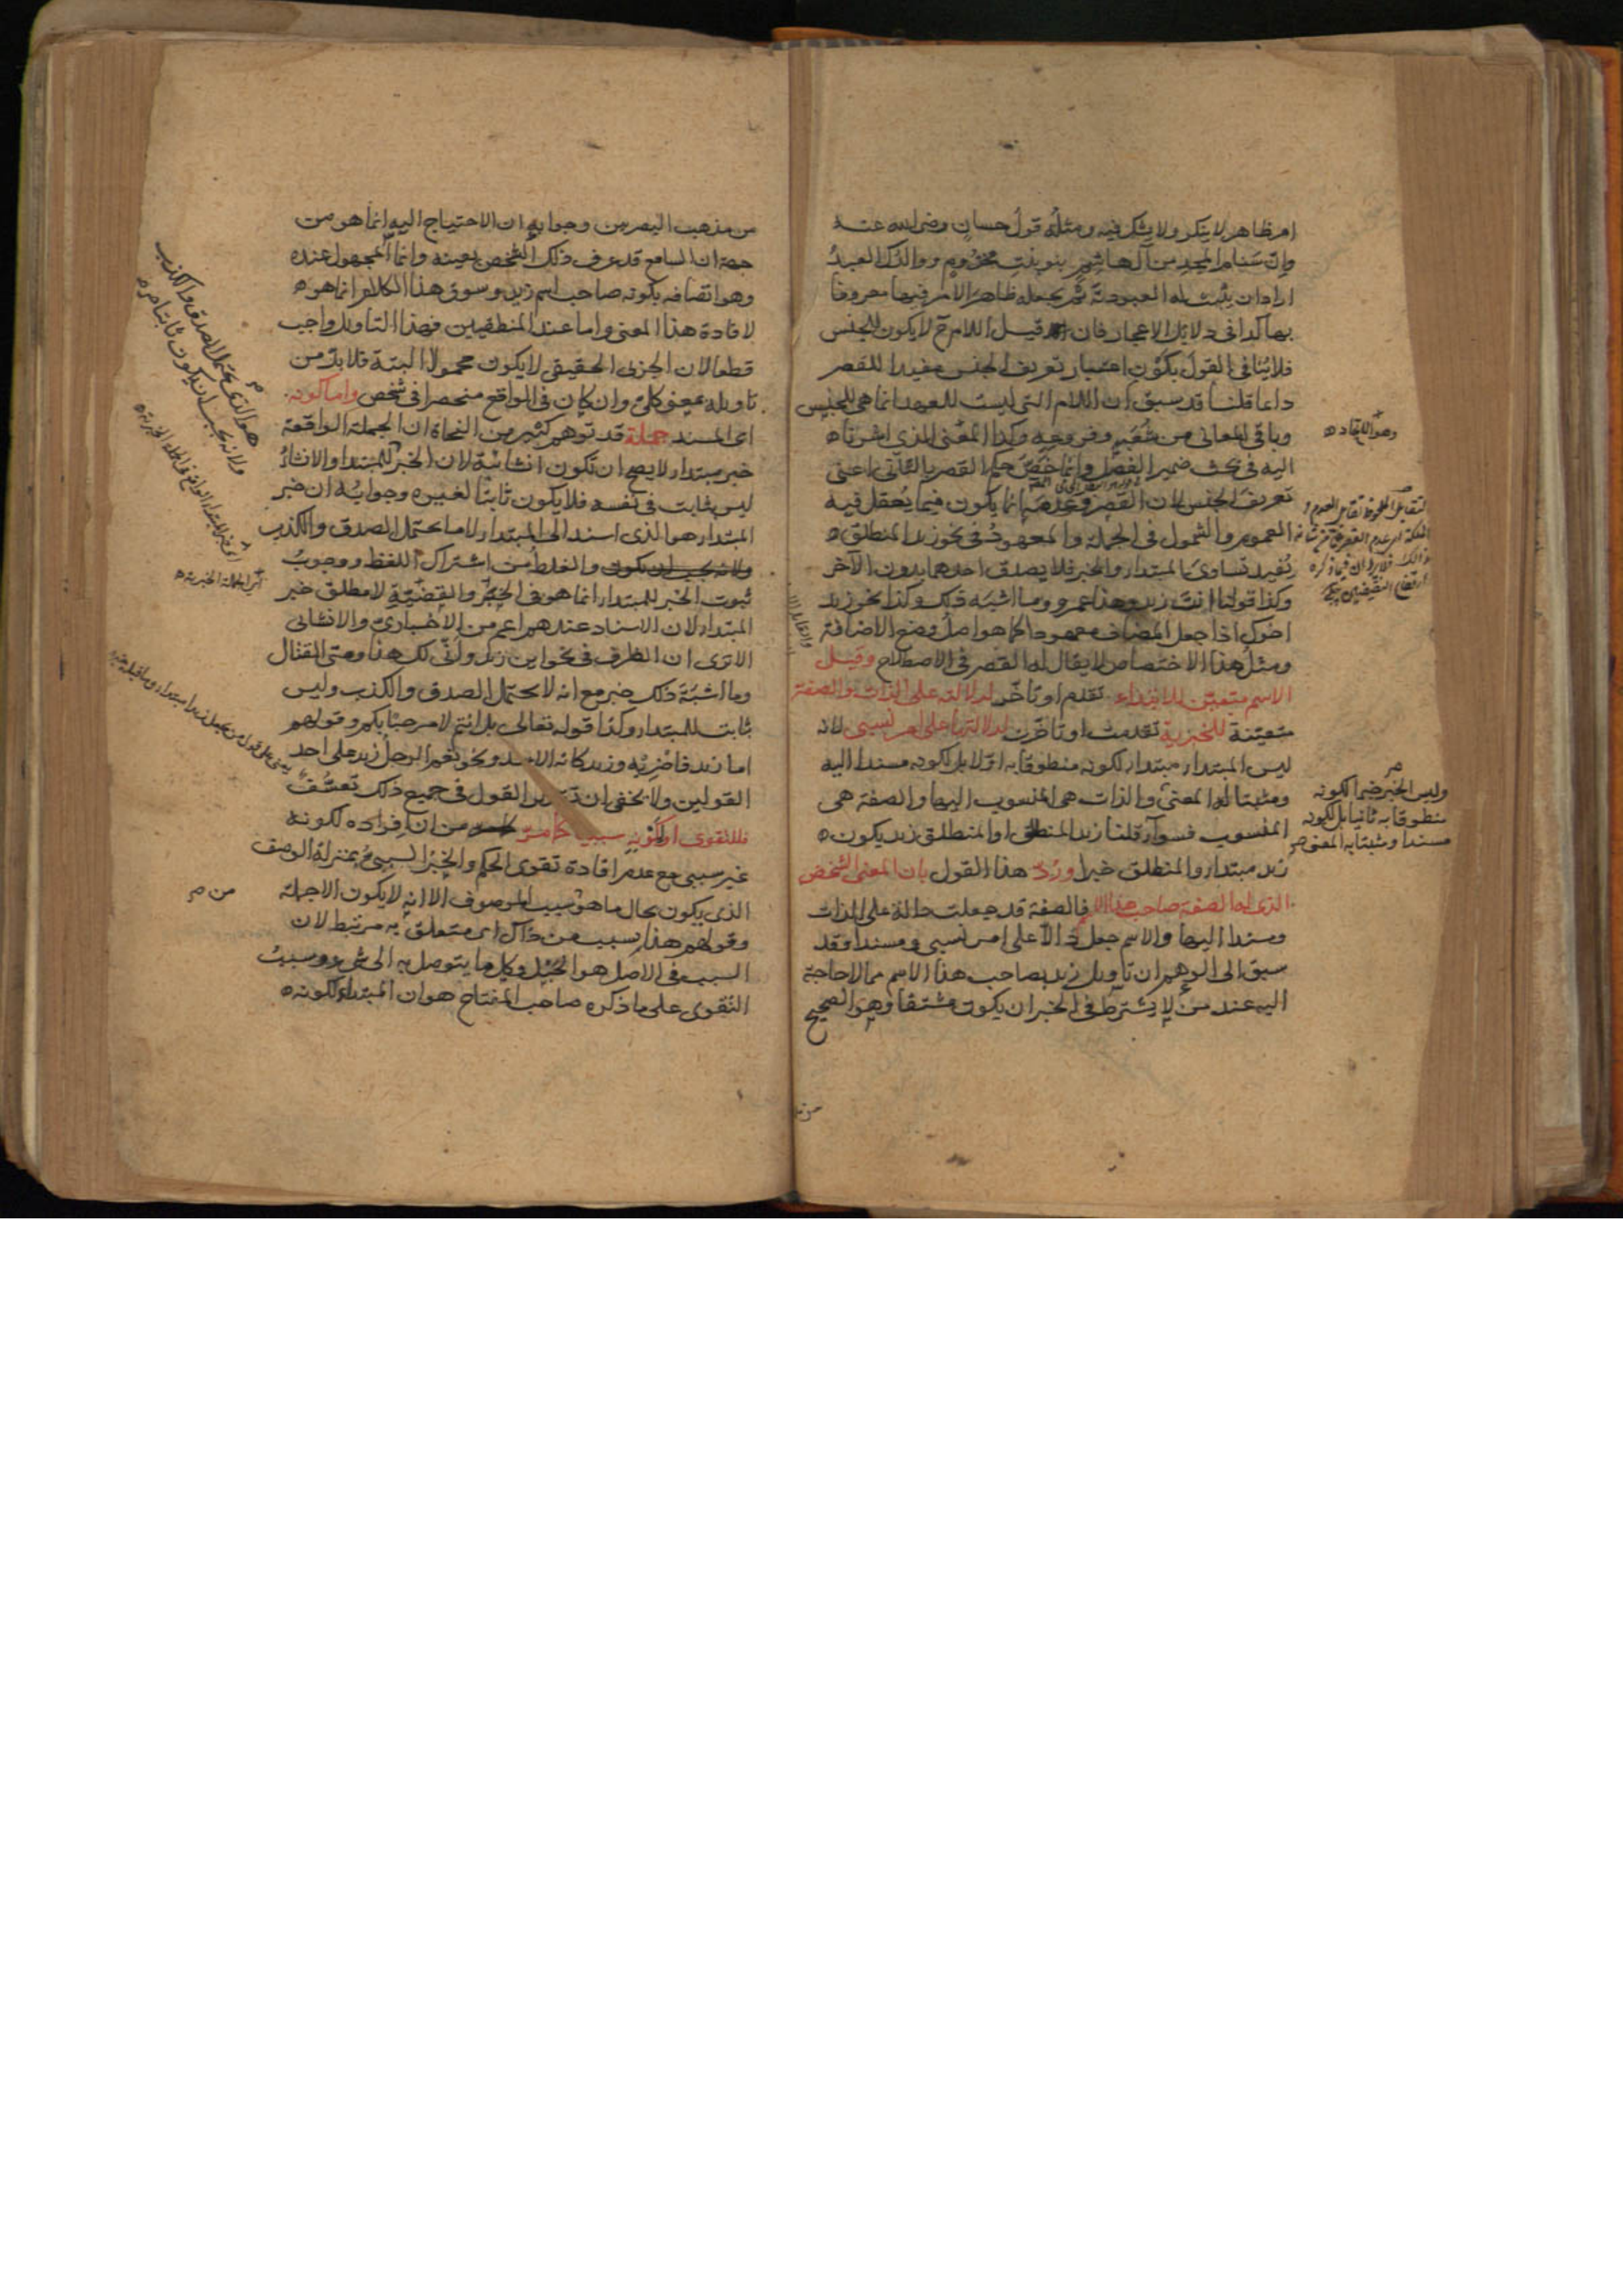 امر ظاهر لا ينكر ولا يشك فيه ومثله قول حسان رضى الله عنه
وان سنام المجد من آل هاشم بنو بنت مخزوم ووالدك العبد
اراد ان يثبت له العبودية ثم يجعله ظاهر الامر فيها معروفا
بها كذا فى دلايل الاعجاز فان قيل اللام ح لا يكون للجنس
فلا ينافى القول بكون اعتبار تعريف الجنس مفيدا للقصر
داعا قلنا قد سبق ان اللام التى ليست للعهد انما هى للجنس
وباقى المعانى من شعبه وفروعه وكذا المعنى الذى اشرنا
اليه فى بحث ضمير الفصل وانما خص حكم القصر بالثانى اعنى
تعريف الجنس لان القصر وعدمه انما يكون فيما يعقل فيه
العموم والشمول فى الجملة والمعهود فى نحو زيد المنطلق
يفيد تساوى المبتدا والخبر فلا يصدق احدهما بدون الآخر
وكذا قولنا انت زيد وهذا عمرو وما اشبه ذلك وكذا نحو زيد
اخوك اذا جعل المضاف معهودا كما هو اصل وضع الاضافة
ومثل هذا الاختصاص لا يقال له القصر فى الاصطلاح وقيل
الاسم متعين للابتداء تقدم او تأخر لدلالته على الذات والصفة
متعينة للخبرية تقدمت او تأخرت لدلالتها على امر نسبى لانه
ليس المبتدا مبتدا لكونه منطوقا به اولا بل لكونه مسندا اليه
ومثبتا له المعنى والذات هى المنسوب اليها والصفة هى
المنسوب فسواء قلنا زيد المنطلق او المنطلق زيد يكون
زيد مبتدا والمنطلق خبرا ورد هذا القول بان المعنى الشخص
الذى له الصفة صاحب هذا الاسم فالصفة قد جعلت دالة على الذات
ومسندا اليها والاسم جعل دالا على امر نسبى ومسندا وقد
سبق الى الوهم ان تأويل زيد بصاحب هذا الاسم مما لا حاجة
اليه عند من لا يشترط فى الخبر ان يكون مشتقا وهو الصحيح
وليس الخبر خبرا لكونه
منطوقا به ثانيا بل لكونه
مسندا ومثبتا به المعنى صح
من مذهب البصريين وجوابه ان الاحتياج اليه انما هو من
جهة ان السامع قد عرف ذلك الشخص بعينه وانما المجهول عنده
وهو اتصافه بكونه صاحب اسم زيد وسوق هذا الكلام انما هو
لافادة هذا المعنى واما عند المنطقيين فهذا التأويل واجب
قطعا لان الجزئى الحقيقى لا يكون محمولا البتة فلا بد من
تأويله بمعنى كلى وان كان فى الواقع منحصرا فى شخص واما كونه
اى المسند جملة قد توهم كثير من النحاة ان الجملة الواقعة
خبر مبتدا لا يصح ان تكون انشائية لان الخبر للمبتدا والانشاء
ليس بثابت فى نفسه فلا يكون ثابتا لغيره وجوابه ان خبر
المبتدا هو الذى اسند الى المبتدا لا ما يحتمل الصدق والكذب
ولانه يجب ان يكون والغلط من اشتراك اللفظ ووجوب
ثبوت الخبر للمبتدا انما هو فى الخبر والقضية لا مطلق خبر
المبتدا لان الاسناد عندهم اعم من الاخبارى والانشائى
الا ترى ان الظرف فى نحو اين زيد وانى لك هذا ومتى القتال
وما اشبه ذلك خبر مع انه لا يحتمل الصدق والكذب وليس
ثابت للمبتدا وكذا قوله تعالى بل انتم لا مرحبا بكم وقولهم
اما زيد فاضربه وزيد كانه الاسد ونحو نعم الرجل زيد على احد
القولين ولا يخفى ان تقدير القول فى جميع ذلك تعسف
فللتقوى او لكونه سببيا كما مر من ان افراده لكونه
غير سببى مع عدم افادة تقوى الحكم والخبر السببى بمنزلة الوصف
الذى يكون بحال ما هو سبب الموصوف الا انه لا يكون الا جملة
وقولهم هذا سبب من ذاك اى متعلق به مرتبط لان
السبب فى الاصل هو الحبل وكل ما يتوصل به الى شىء وسبب
التقوى على ما ذكره صاحب المفتاح هو ان المبتدا لكونه
هو الذى يحتمل الصدق والكذب
ولانه يجب ان يكون ثابتا
اى الجملة الخبرية